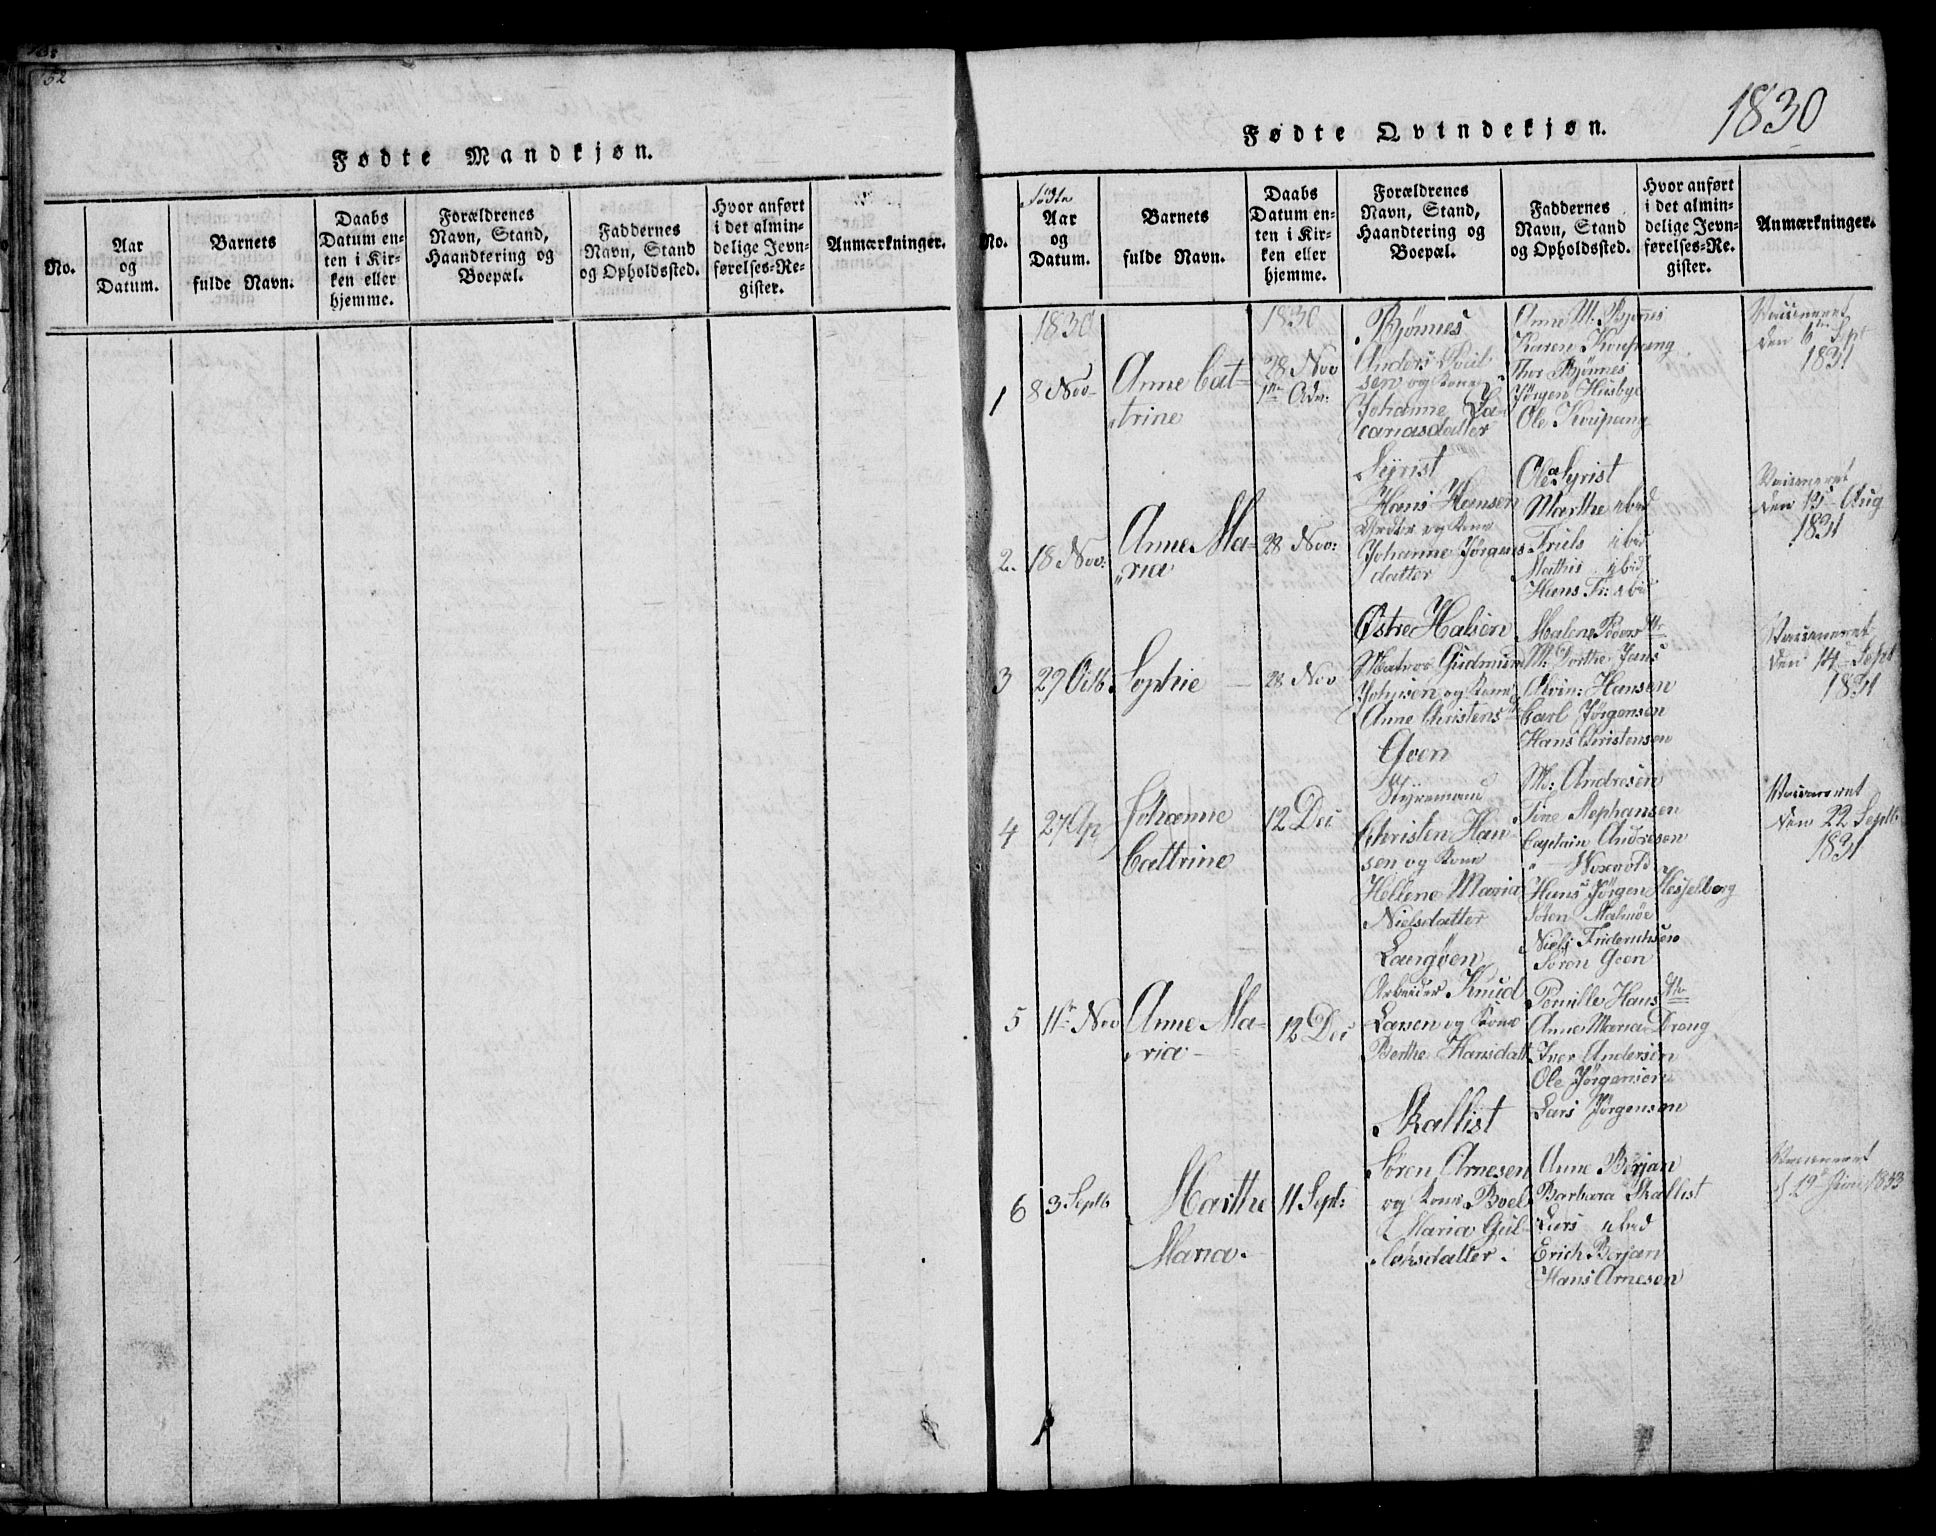 152
Fødte Mandkjøn.
No.
Aar
og
Datum.
Barnets
fulde Navn.
Daabs
Datum en-
ten i Kir-
ken eller
hjemme.
Forældrenes
Navn, Stand,
Haandtering og
Boepæl.
Faddernes
Navn, Stand
og Opholdssted.
Hvor anført
i det almin-
delige Jevn-
førelses-Re-
gister.
Anmærkninger.
1830
Fødte Qvindekjøn.
No.
Fødte
Aar
og
Datum.
Barnets
fulde Navn.
Daabs
Datum en-
ten i Kir-
ken eller
hjemme.
Forældrenes
Navn, Stand,
Haandtering og
Boepæl.
Faddernes
Navn, Stand
og Opholdssted.
Hvor anført
i det almin-
delige Jevn-
førelses-Re-
gister.
Anmærkninger.
1
1830
8 Nov
Anne Cat-
trine
1830
28 Nov
1ste Adv:
Bjønnes
Anders Poul
sen og Kone
Johanne Za-
cariasdatter
Anne M. Bjønnes
Karen Koupang
Thor Bjønnes
Jørgen Husbye
Ole Koupang
Vaccineret
den 6te Sept
1831
2.
18 Nov:
Anne Ma-
ria
28 Nov:
Hans Hansen
og Kone
Johanne Jørgens
datter
Marthe ibid
Friels ibid
Mathis ibid
Hans Fr: ibid
Vaccineret
den 15 Aug
1831
3
29 Octb.
Sophie
28 Nov
Østre Halsen
Matros Gudmun
Johnsen og Kone
Anne Christens
Malene Peders
M: Dorthe Jans
Hansen
Carl Jørgensen
Hans Christensen
Vaccineret
den 14 Sept
1831
4
27
Johanne
Cattrine
12 Dec
Styremand
Christen Han-
sen og Kone
Hellene Maria
Nielsdatter
Ma: Andresen
Tine Stephansen
Captain Andresen
" Woxvold
Hans Jørgen Hesselberg
Søren Malmøe
Niels Friderichsen
Søren
Vaccineret
den 22 Septb.
1831
5
11te Nov
Anne Ma-
ria
12 Dec
Langøen
Arbeider Knud
Larsen og Kone
Berthe Hansdatt
Pernille Hans
Anne Maria Dreng
Iver Andersen
Ole Jørgensen
Lars Jørgensen
6
3 Septb
Marthe
Maria
11 Sept:
Skallist
Søren Arnesen
og Kone Boel
Maria Gul
loksdatter
Anne Berjan
Barbara Skallist
Lars ibid
Erich Berjan
Hans Arnesen
Vaccineret
d 19 Juni 1833